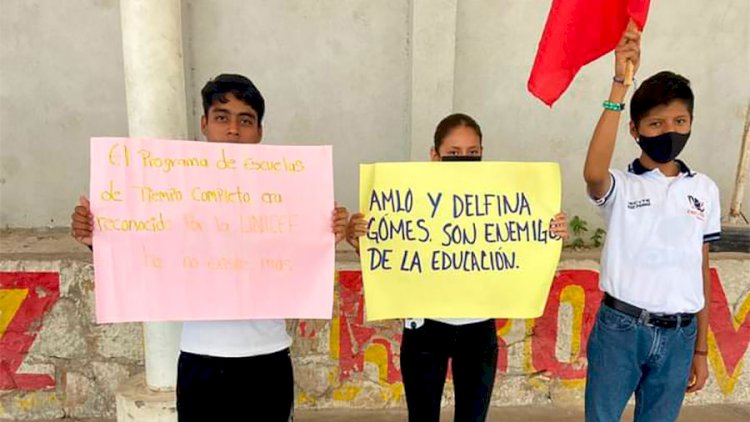 El Programa de Escuelas
de Tiempo Completo era
reconocido por la UNICEF
ha no existe más
AMLO Y DELFINA
GÓMES. SON ENEMIGOS
DE LA EDUCACIÓN.